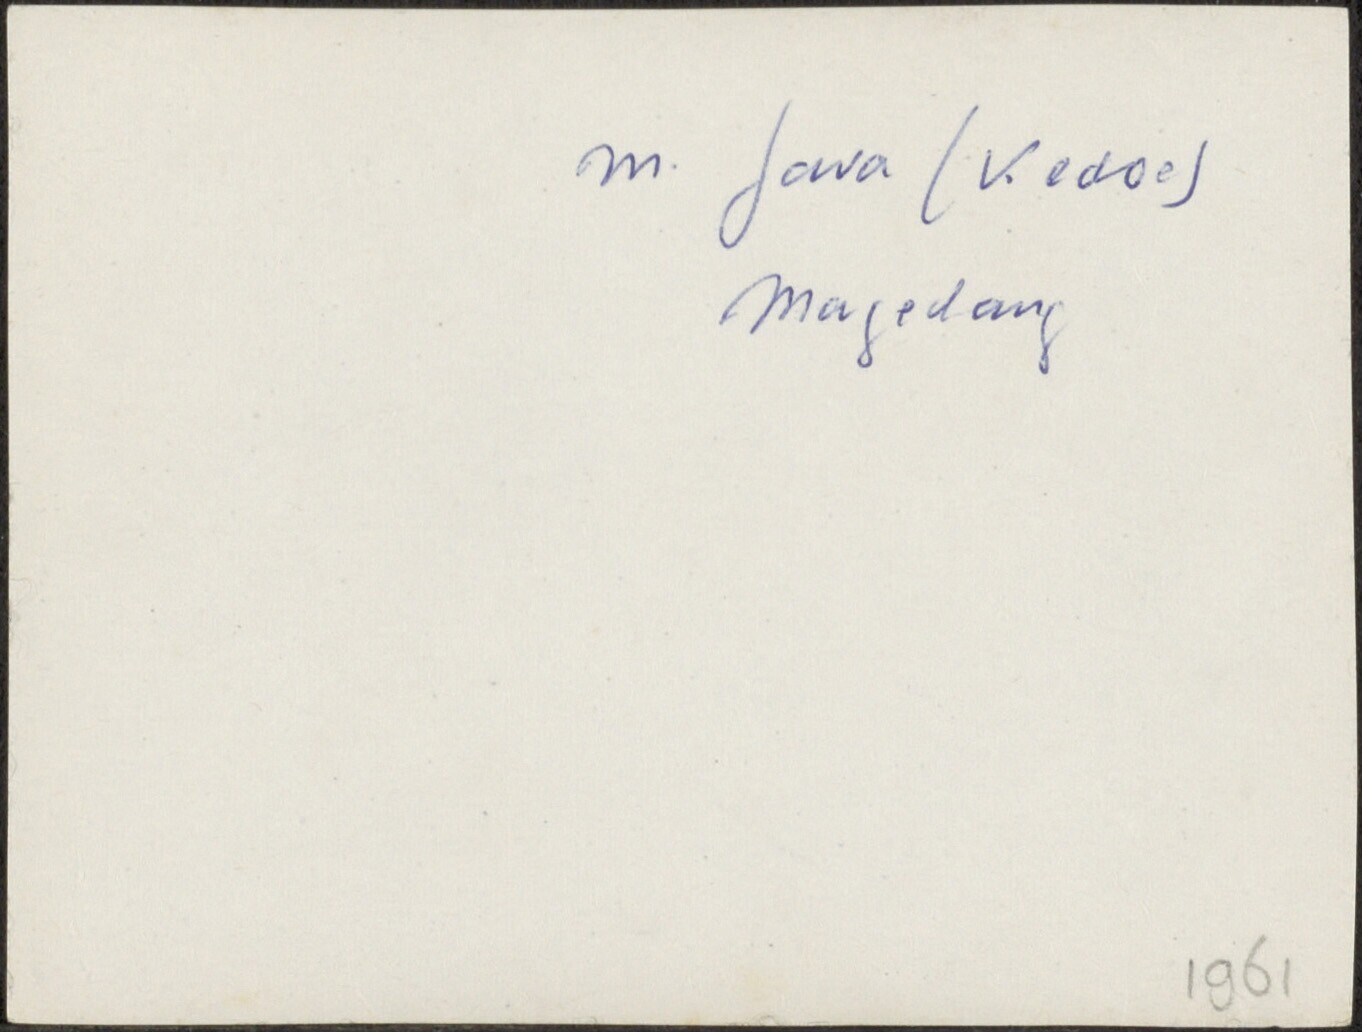 M. Java (Kedoe)
Magedang
1961